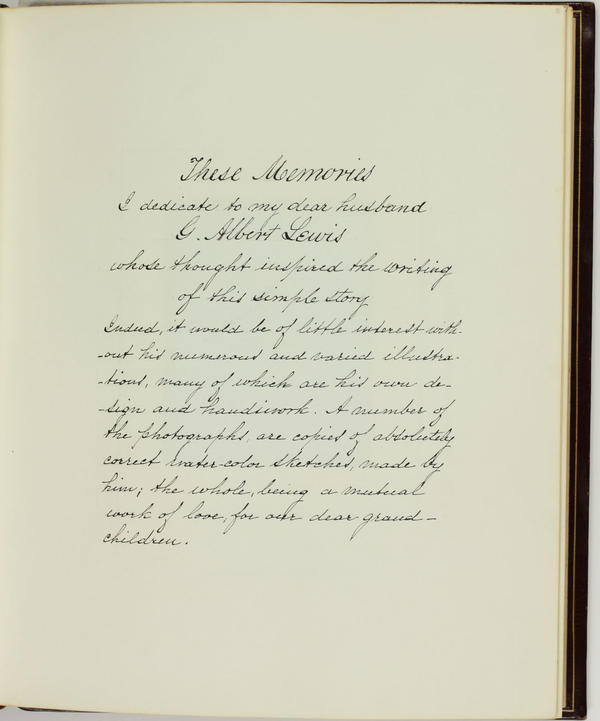 These Memories
I dedicate to my dear husband
G. Albert Lewis
whose thought inspired the writing
of this simple story
Indeed, it would be of little interest with-
-out his numerous and varied illustra-
-tions, many of which are his own de-
-sign and handiwork. A number of
the photographs, are copies of absolutely
correct water-color sketches, made by
him; the whole, being a mutual
work of love, for our dear grand-
children.